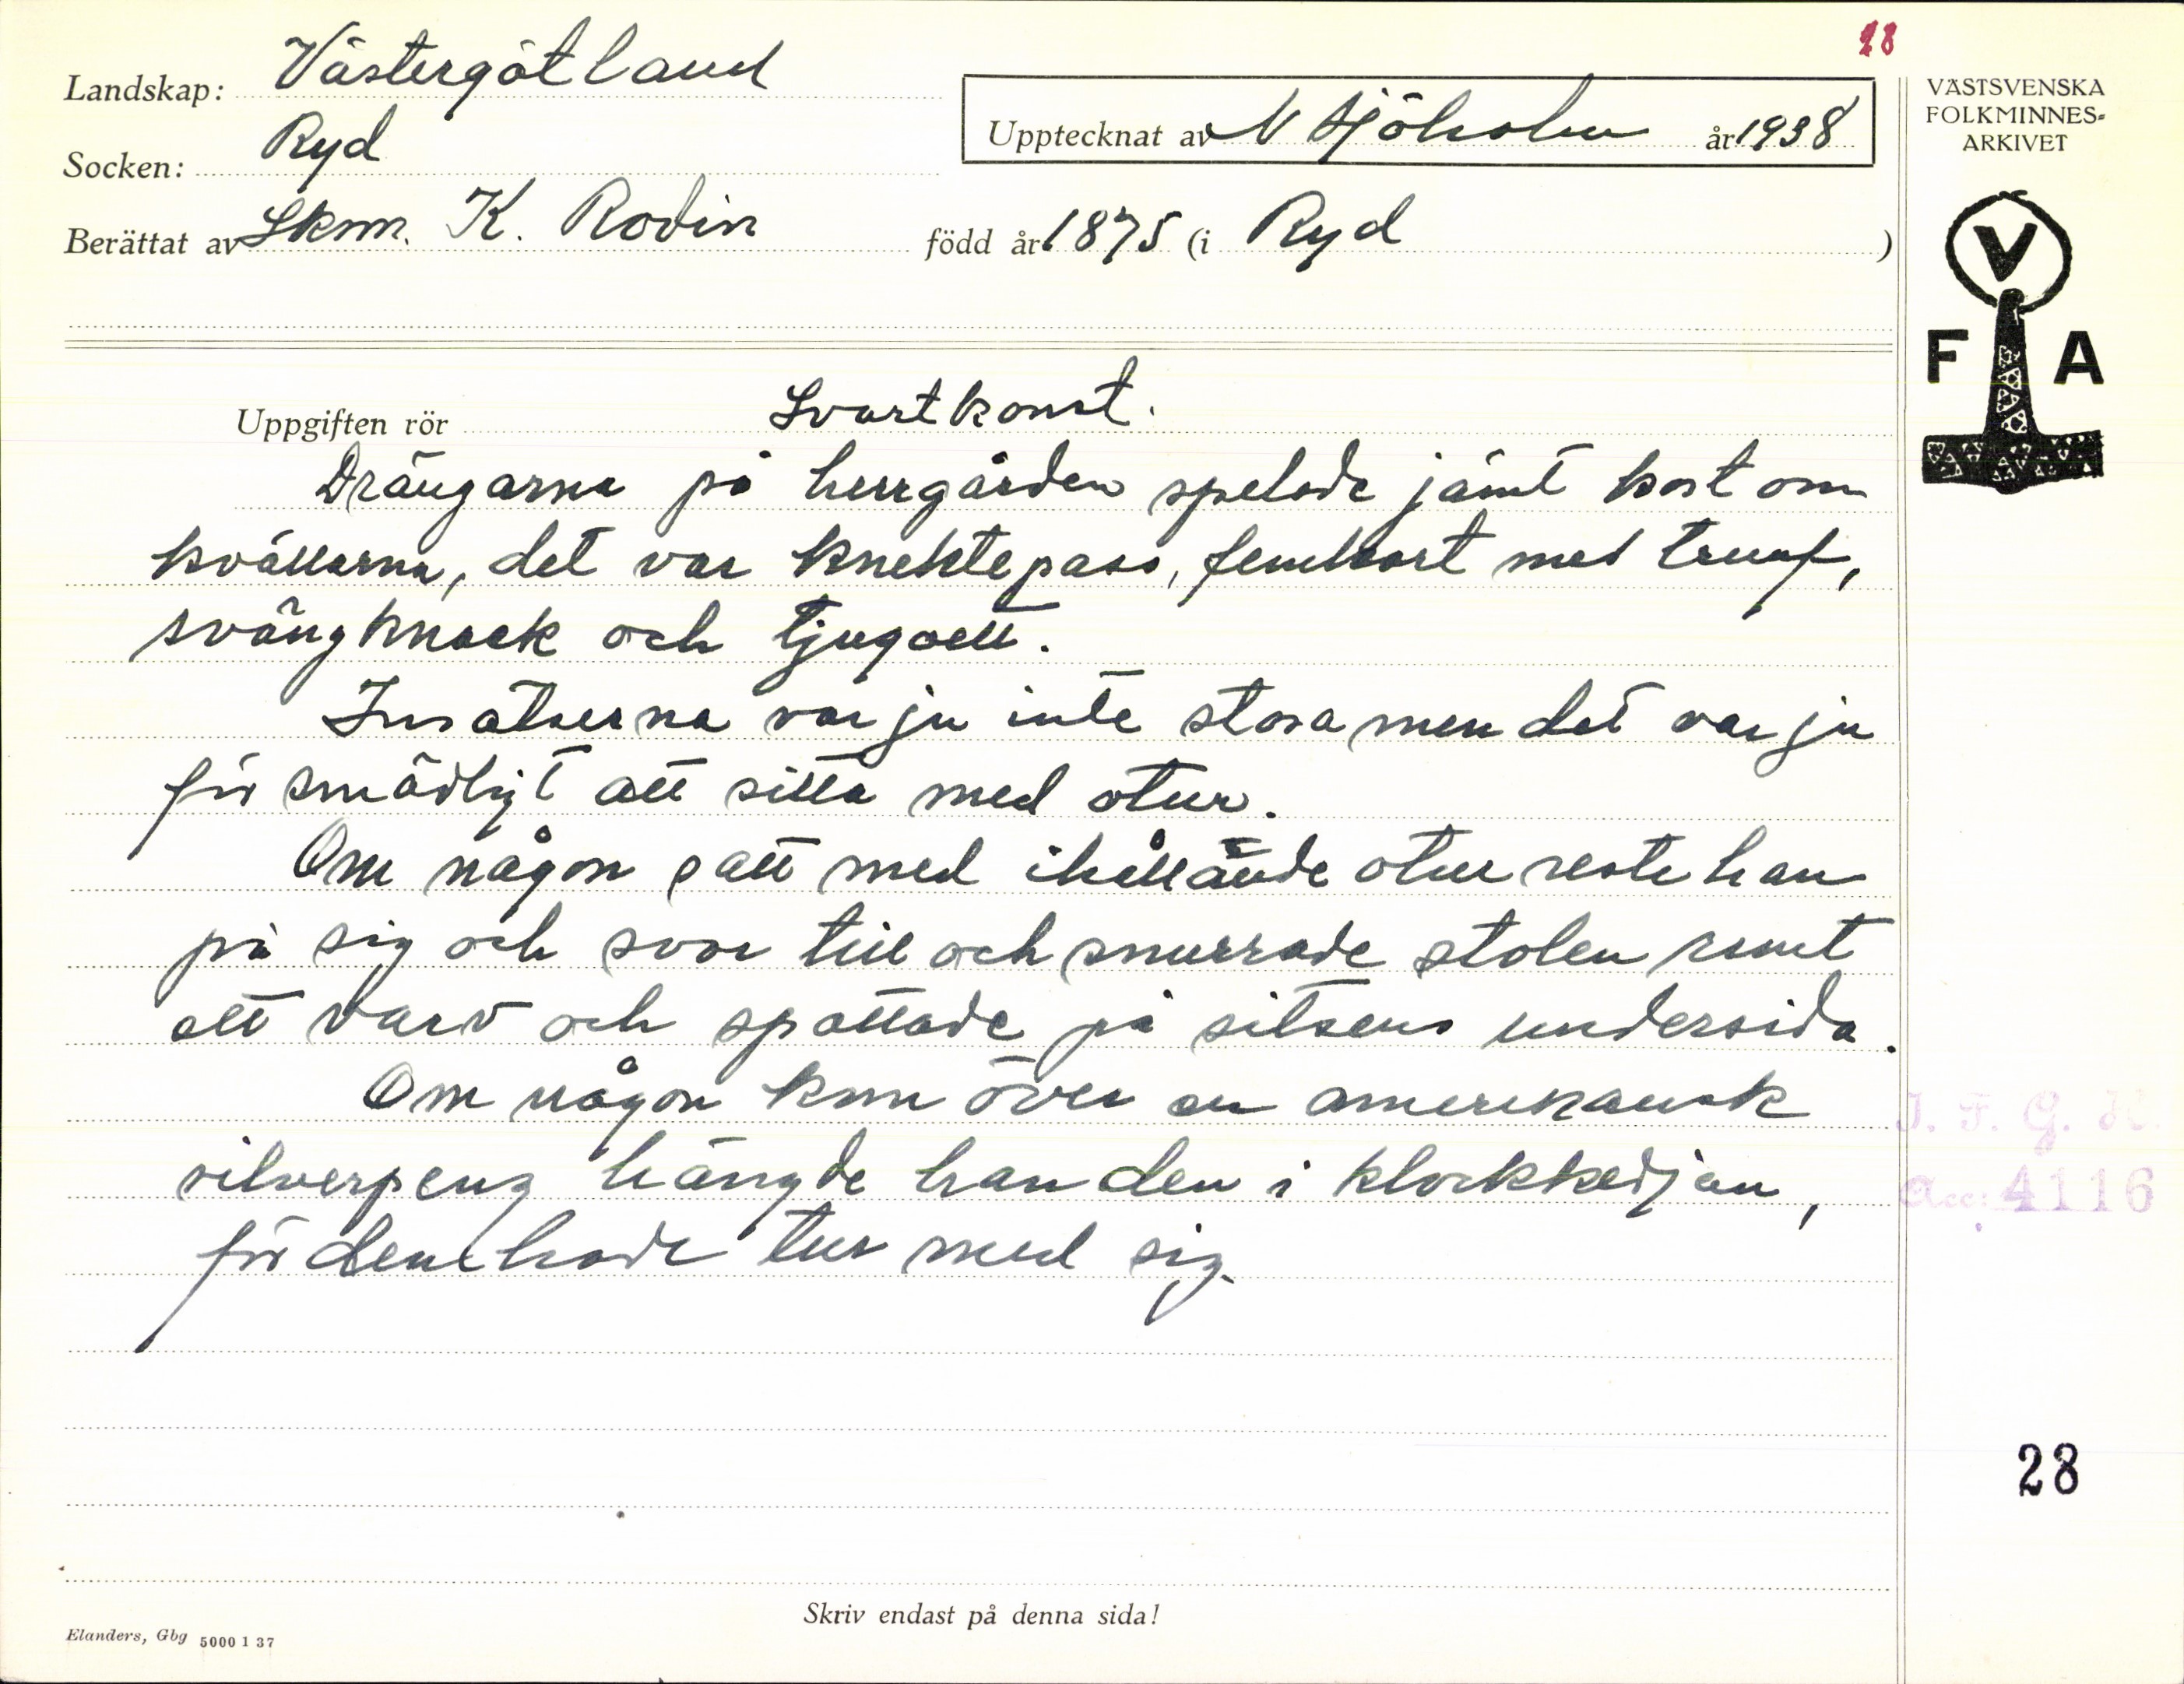 28
Landskap: Västergötland
Socken: Ryd
Upptecknat av N Sjöholm år 1938
Berättat av Skm. K. Rodin född år 1875 (i Ryd )
VÄSTSVENSKA
FOLKMINNES-
ARKIVET
V
F A
Uppgiften rör Svartkonst.
Drängarna på herrgården spelade jämt kort om
kvällarna, det var knektepass, femkort med trumf,
svängknack och tjugoett.
Insatserna var ju inte stora men det var ju
för smädligt att sitta med otur.
Om någon satt med ihållande otur reste han
på sig och svor till och snurrade stolen runt
ett varv och spottade på sitsens undersida.
Om någon kom över en amerikansk
silverpeng hängde han den i klockkedjan,
för den hade tur med sig.
I. F. G. H.
Acc: 4116
28
Skriv endast på denna sida!
Elanders, Gbg 5000 1 37